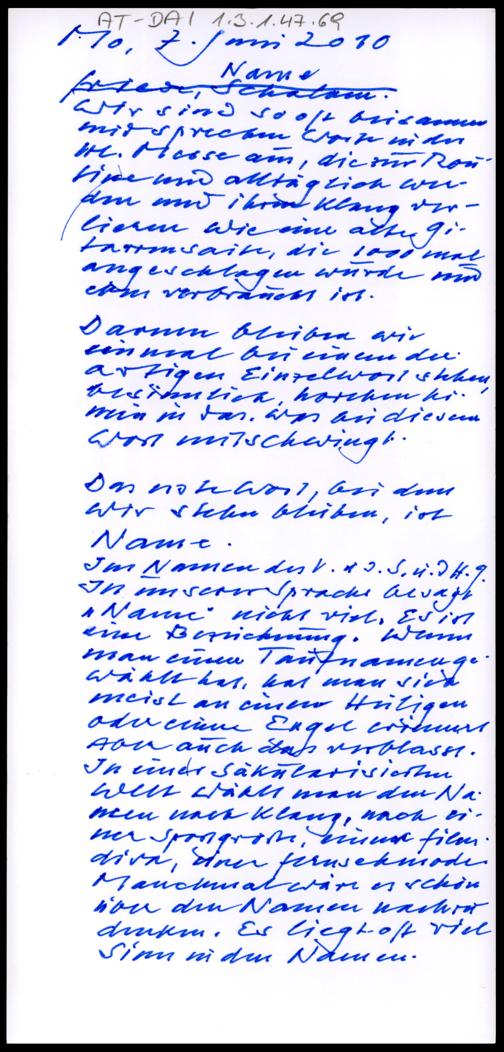 AT-DAI 1.3.1.47.69
Mo, 7. Juni 2010
Name
Friede, Schalom.
Wir sind so oft beisammen
und sprechen Worte in der
Hl. Messe aus, die zur Rou-
tine und alltäglich wer-
den und ihren Klang ver-
lieren wie eine alte Gi-
tarrensaite, die 1000 mal
angeschlagen wurde und
eben verbraucht ist.
Darum bleiben wir
einmal bei einem der-
artigen Einzelwort stehen,
besinnlich, horchen hi-
nein in das. was bei diesem
Wort mitschwingt.
Das erste Wort, bei dem
wir stehen bleiben, ist
Name.
Im Namen des V. u. d. S. u. d. H. G.
In unserer Sprache besagt
"Name" nicht viel. Es ist
eine Bezeichnung. Wenn
man einen Taufnamen ge-
wählt hat, hat man sich
meist an einen Heiligen
oder einen Engel erinnert
Aber auch das verblasst.
In einer säkularisierten
Welt wählt man den Na-
men nach Klang, nach ei-
ner Sportgröße, einer Film-
diva, einer Fernsehmode.
Manchmal wäre es schön
über den Namen nachzu-
denken. Es liegt oft viel
Sinn in den Namen.